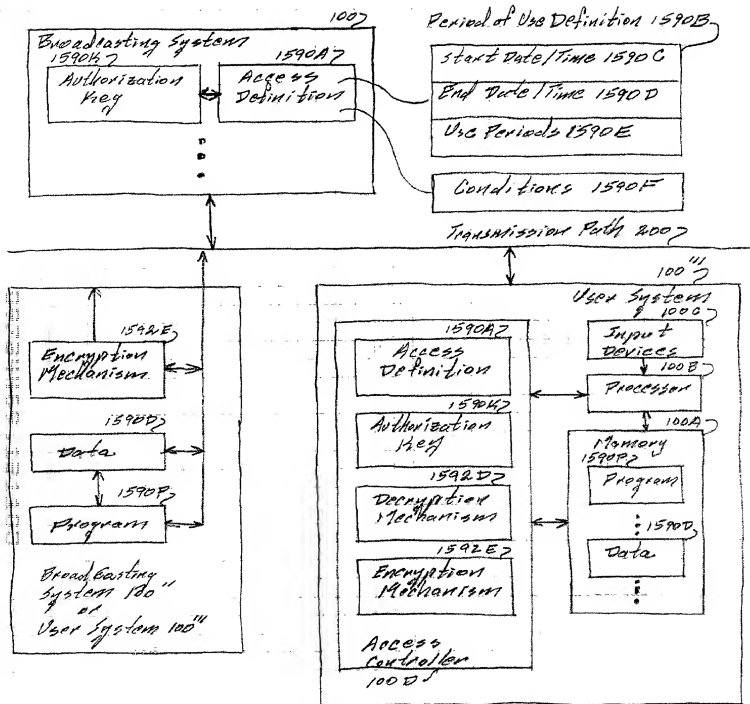 100
Broadcasting System
1590K
Authorization
Key
1590A
Access
Definition
Period of Use Definition 1590B
Start Date/Time 1590C
End Date/Time 1590D
Use Periods 1590E
Conditions 1590F
Transmission Path 200
1592E
Encryption
Mechanism
1590D
Data
1590P
Program
Broadcasting
System 100"
or
User System 100'"
100'"
User System
1590A
Access
Definition
1590K
Authorization
Key
1592D
Decryption
Mechanism
1592E
Encryption
Mechanism
Access
Controller
100D
100C
Input
Devices
100B
Processor
100A
Memory
1590P
Program
1590D
Data